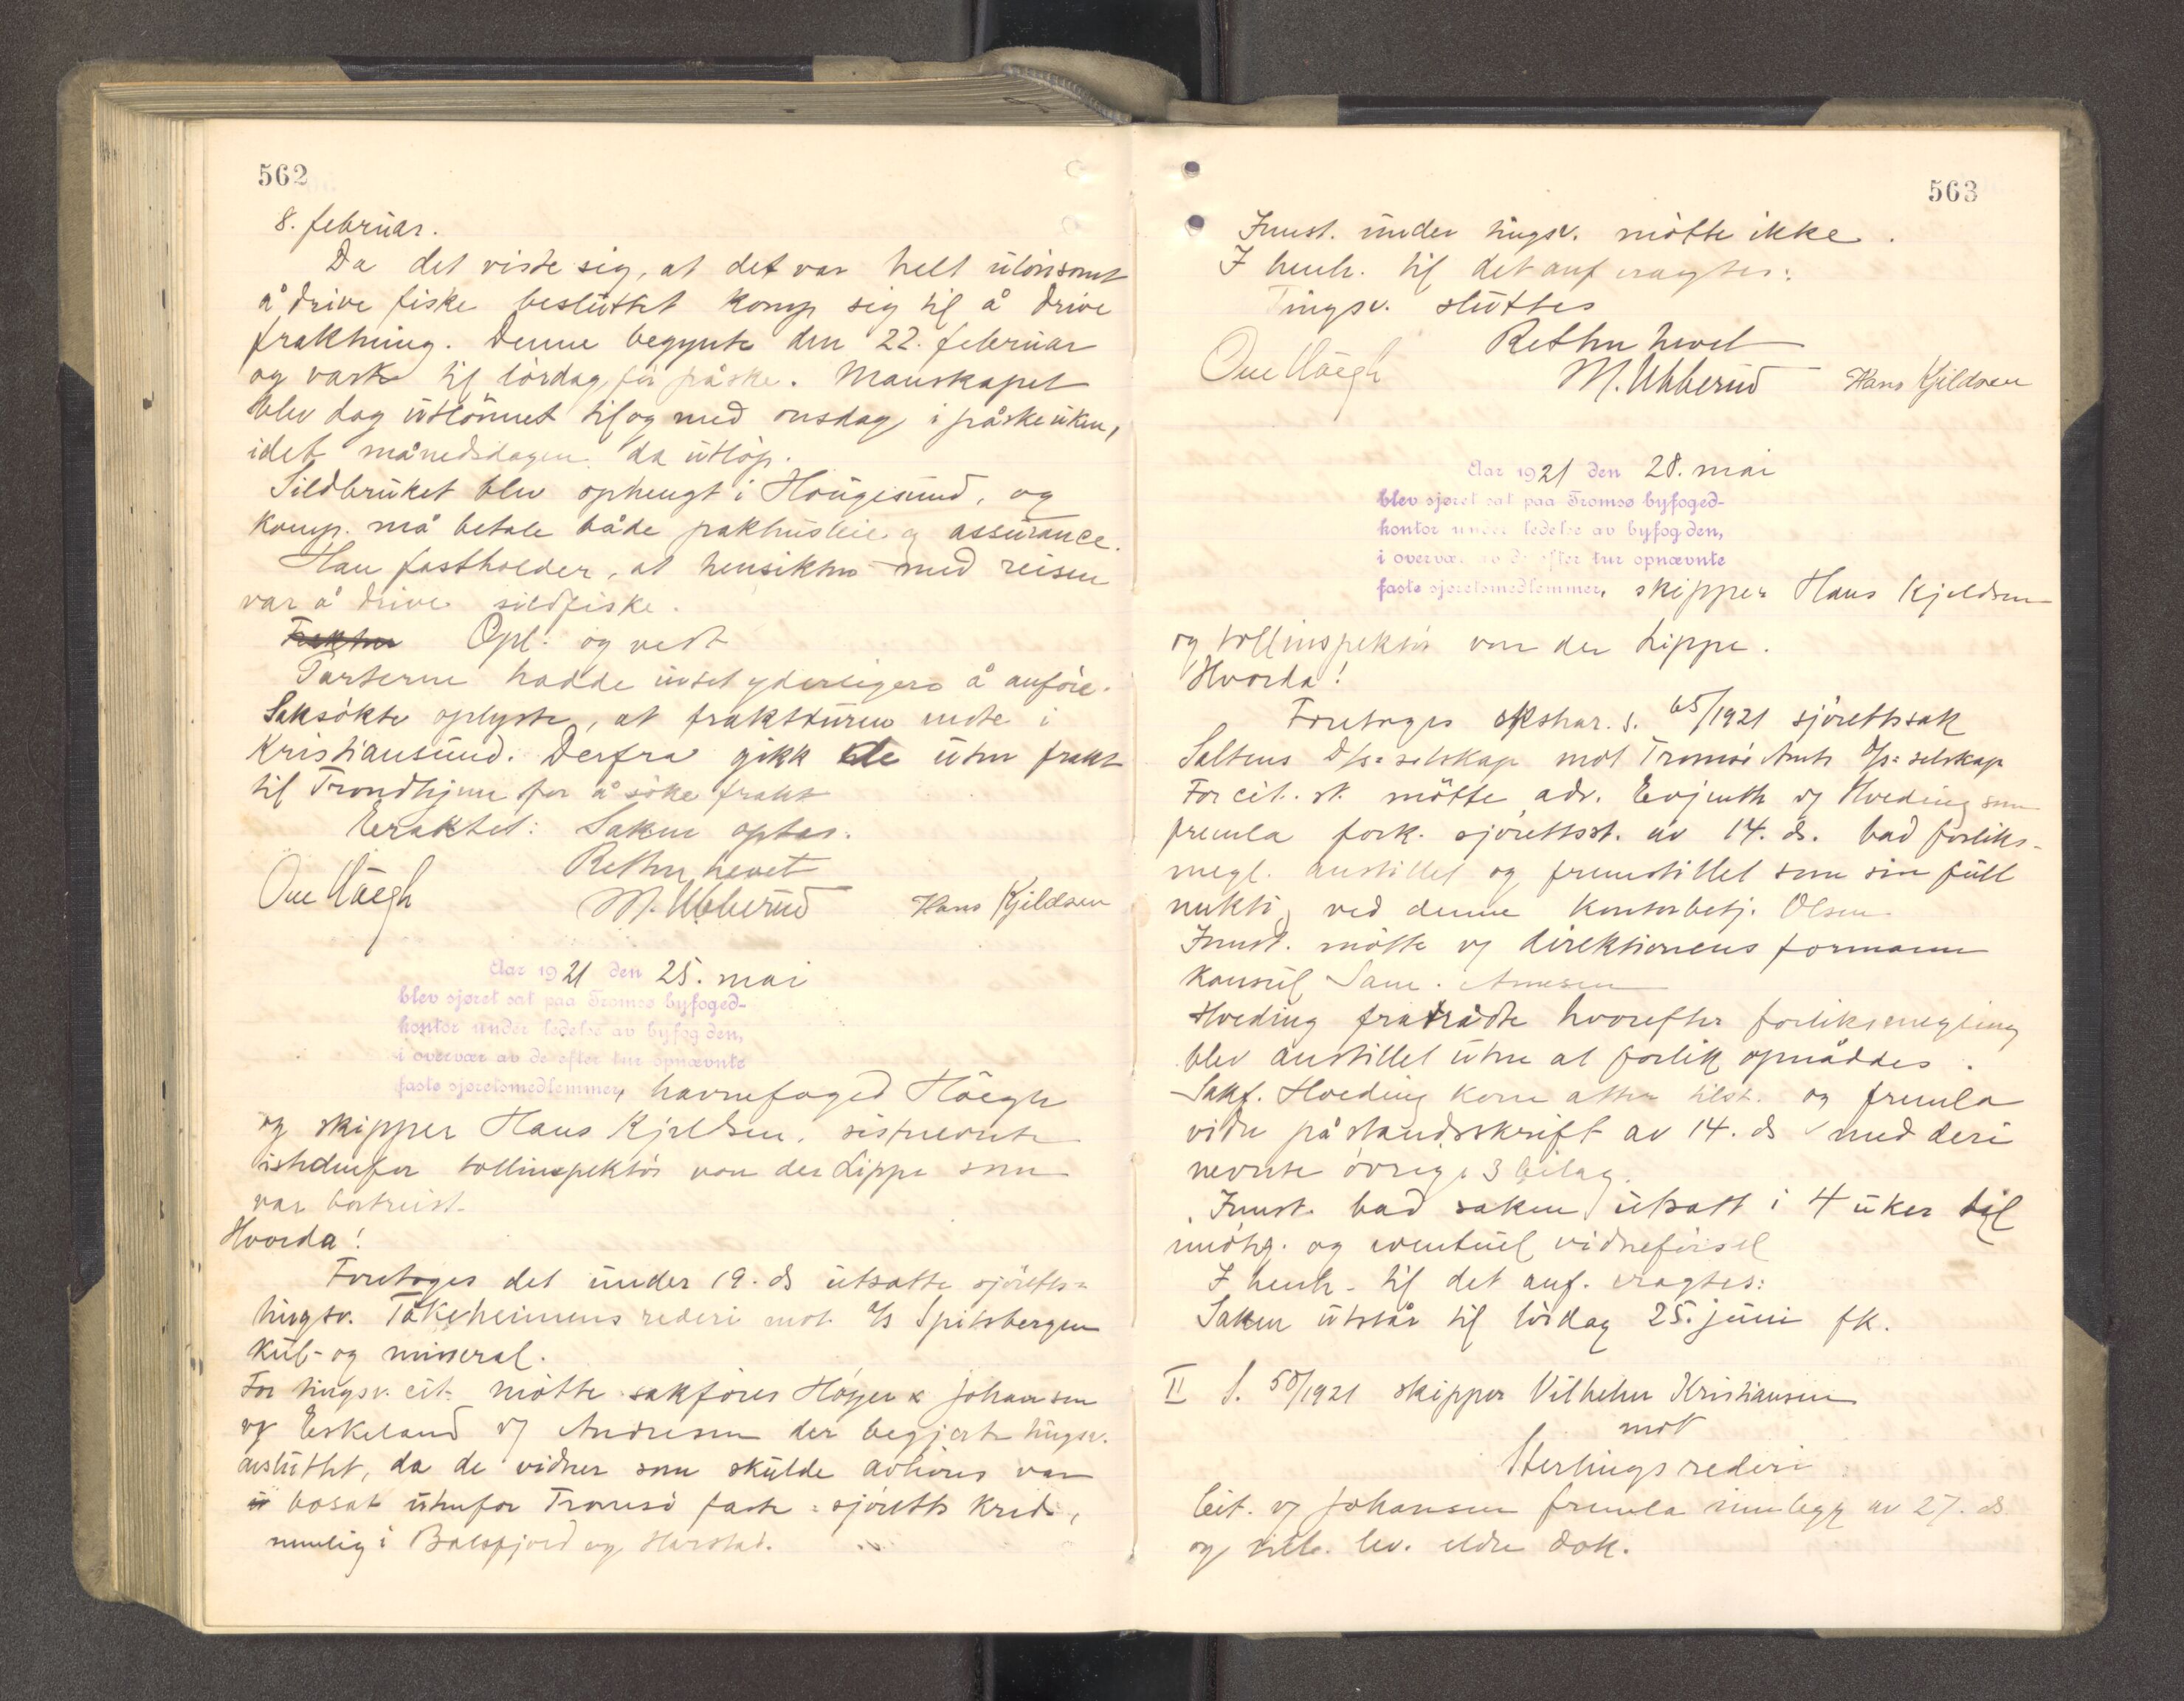 562
8. februar.
Da det viste sig, at det var helt ulønsomt
å drive fiske besluttet komp sig til å drive
fraktning. Denne begynte den 22. februar
og varte til lördag för påske. Manskapet
blev dog utlönnet til og med onsdag i påskeuken,
idet månedsdagen da utlöp.
Sildbruket blev ophengt i Hougesund, og
komp. må betale både pakhusleie og assurance.
Han fastholder, at hensikten med reisen
var å drive sildfiske.
Opl. og vedt
Parterne hadde intet yderligere å anföre.
Saksökte oplyste, at fraktturen endte i
Kristiansund. Derfra gikk de uten frakt
til Trondhjem for å söke frakt
Eraktet: Saken optas.
Retten hevet
Ove Håegh M. Ubberud Hans Kjeldsen
Aar 1921 den 25. mai
blev sjøret sat paa Tromsø byfoged-
kontor under ledelse av byfogden,
i overvær av de efter tur opnævnte
faste sjøretsmedlemmer, havnefoged Håegh
og skipper Hans Kjeldsen, sistnevnte
istedenfor tollinspektör von der Lippe som
var bortreist.
Hvorda!
Foretoges det under 19. ds utsatte sjöretts-
tingsv. Tåkeheimens rederi mot A/s Spitsbergen
kul- og mineral.
For tingsv. cit. mötte sakförer Höyer & Johansen
og Eskeland v/ Andresen der begjerte tingsv.
avsluttet, da de vidner som skulde avhöres var
bosat utenfor Tromsö faste sjöretts krids,
nemlig i Balsfjord og Harstad.
563
Innst. under tingsv. mötte ikke.
I henh. til det anf eragtes:
Tingsv. sluttes
Retten hevet
Ove Håegh M. Ubberud Hans Kjeldsen
Aar 1921 den 28. mai
blev sjøret sat paa Tromsø byfoged-
kontor under ledelse av byfogden,
i overvær av de efter tur opnævnte
faste sjøretsmedlemmer, skipper Hans Kjeldsen
og tollinspektör von der Lippe.
Hvorda!
Foretoges s. 65/1921 sjörettssak
Saltens D/s-selskap mot Tromsö Amts D/s-selskap
For cit. st. mötte adv. Evjenth v/ Hveding som
fremla fork. sjörettsst. av 14. ds. bad forliks-
megl. anstillet og fremstillet som sin full
mektig ved denne kontorbetj. Olsen
Innst. mötte v/ direktionens formann
Konsul Sam. Arnesen
Hveding fratrådte hvorefter forliksmegling
blev anstillet uten at forlik opnåddes.
Sakf. Hveding kom atter tilst. og fremla
videre påstandsskrift av 14. ds med deri
nevnte övrige 3 bilag.
Innst. bad saken utsatt i 4 uker til
imötg. og eventuel vidneförsel
I henh. til det anf. eragtes:
Saken utstår til lördag 25. juni fk.
II S. 58/1921 skipper Vilhelm Kristiansen
mot
Sterlings rederi
Cit. v/ Johansen fremla innlegg av 27. ds
og lev. eldre dok.